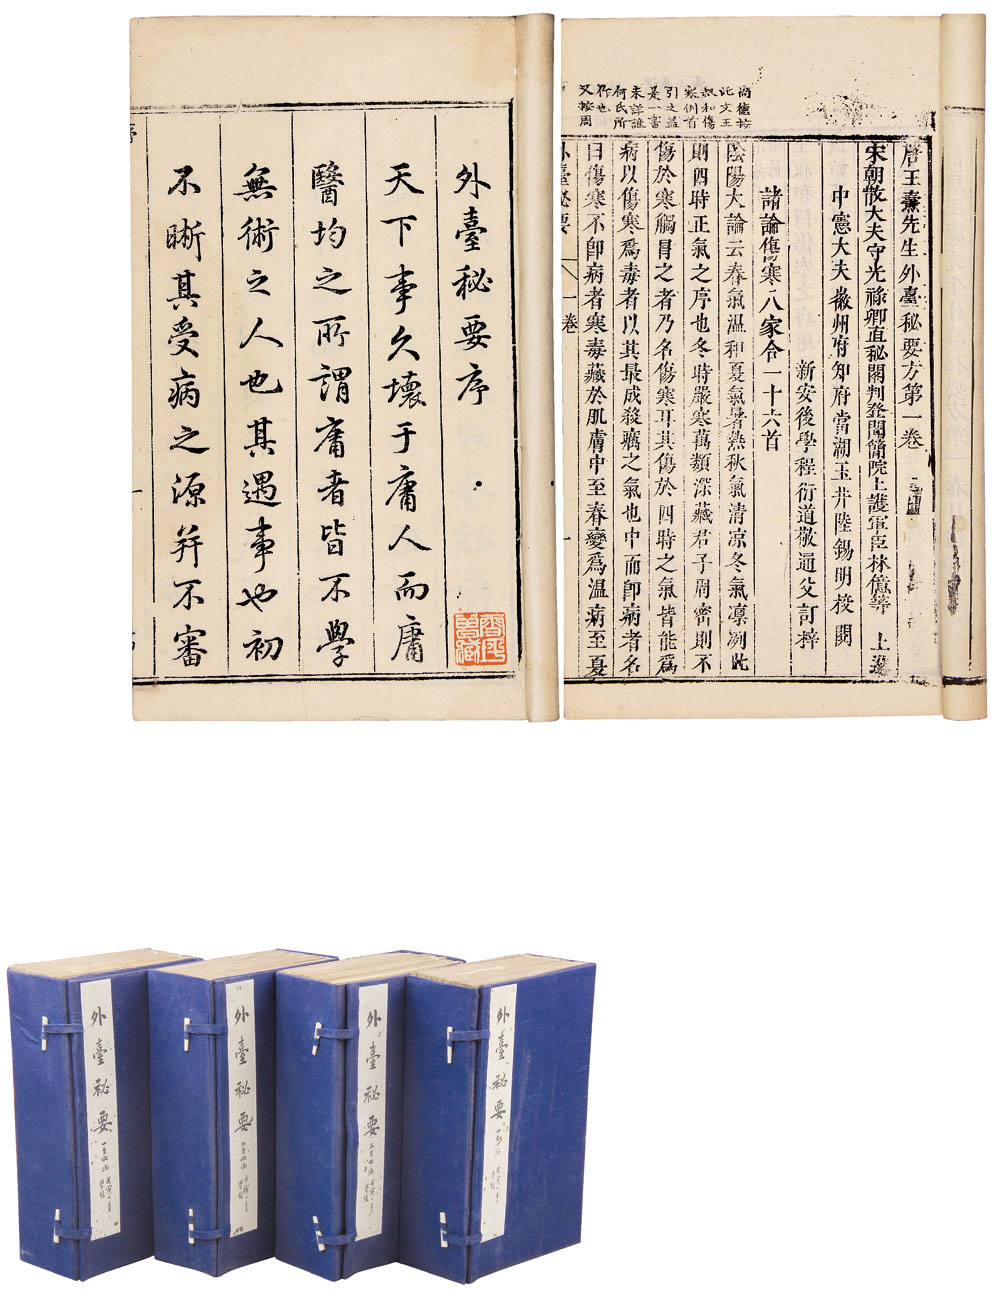 外臺秘要序
天下事久壞于庸人而庸
醫均之所謂庸者皆不學
無術之人也其遇事也初
不晰其受病之源并不審
唐王燾先生外臺秘要方第一卷
宋朝散大夫守光祿卿直秘閣判登聞簡院上護軍臣林億等 上進
中憲大夫徽州府知府當湖玉井陸錫明校閱
新安後學程衍道敬通父訂梓
諸論傷寒八家合一十六首
陰陽大論云春氣溫和夏氣暑熱秋氣清凉冬氣凛冽此
則四時正氣之序也冬時嚴寒萬類深藏君子周密則不
傷於寒觸冒之者乃名傷寒耳其傷於四時之氣皆能爲
病以傷寒爲毒者以其最成殺癘之氣也中而卽病者名
曰傷寒不卽病者寒毒藏於肌膚中至春變爲溫病至夏
外臺秘要 一卷 一
尚德按
此文王
叔和傷
寒例首
引之蓋
是一書
未詳誰
何氏所
作也
又按周
外臺秘要
外臺秘要
外臺秘要
外臺秘要